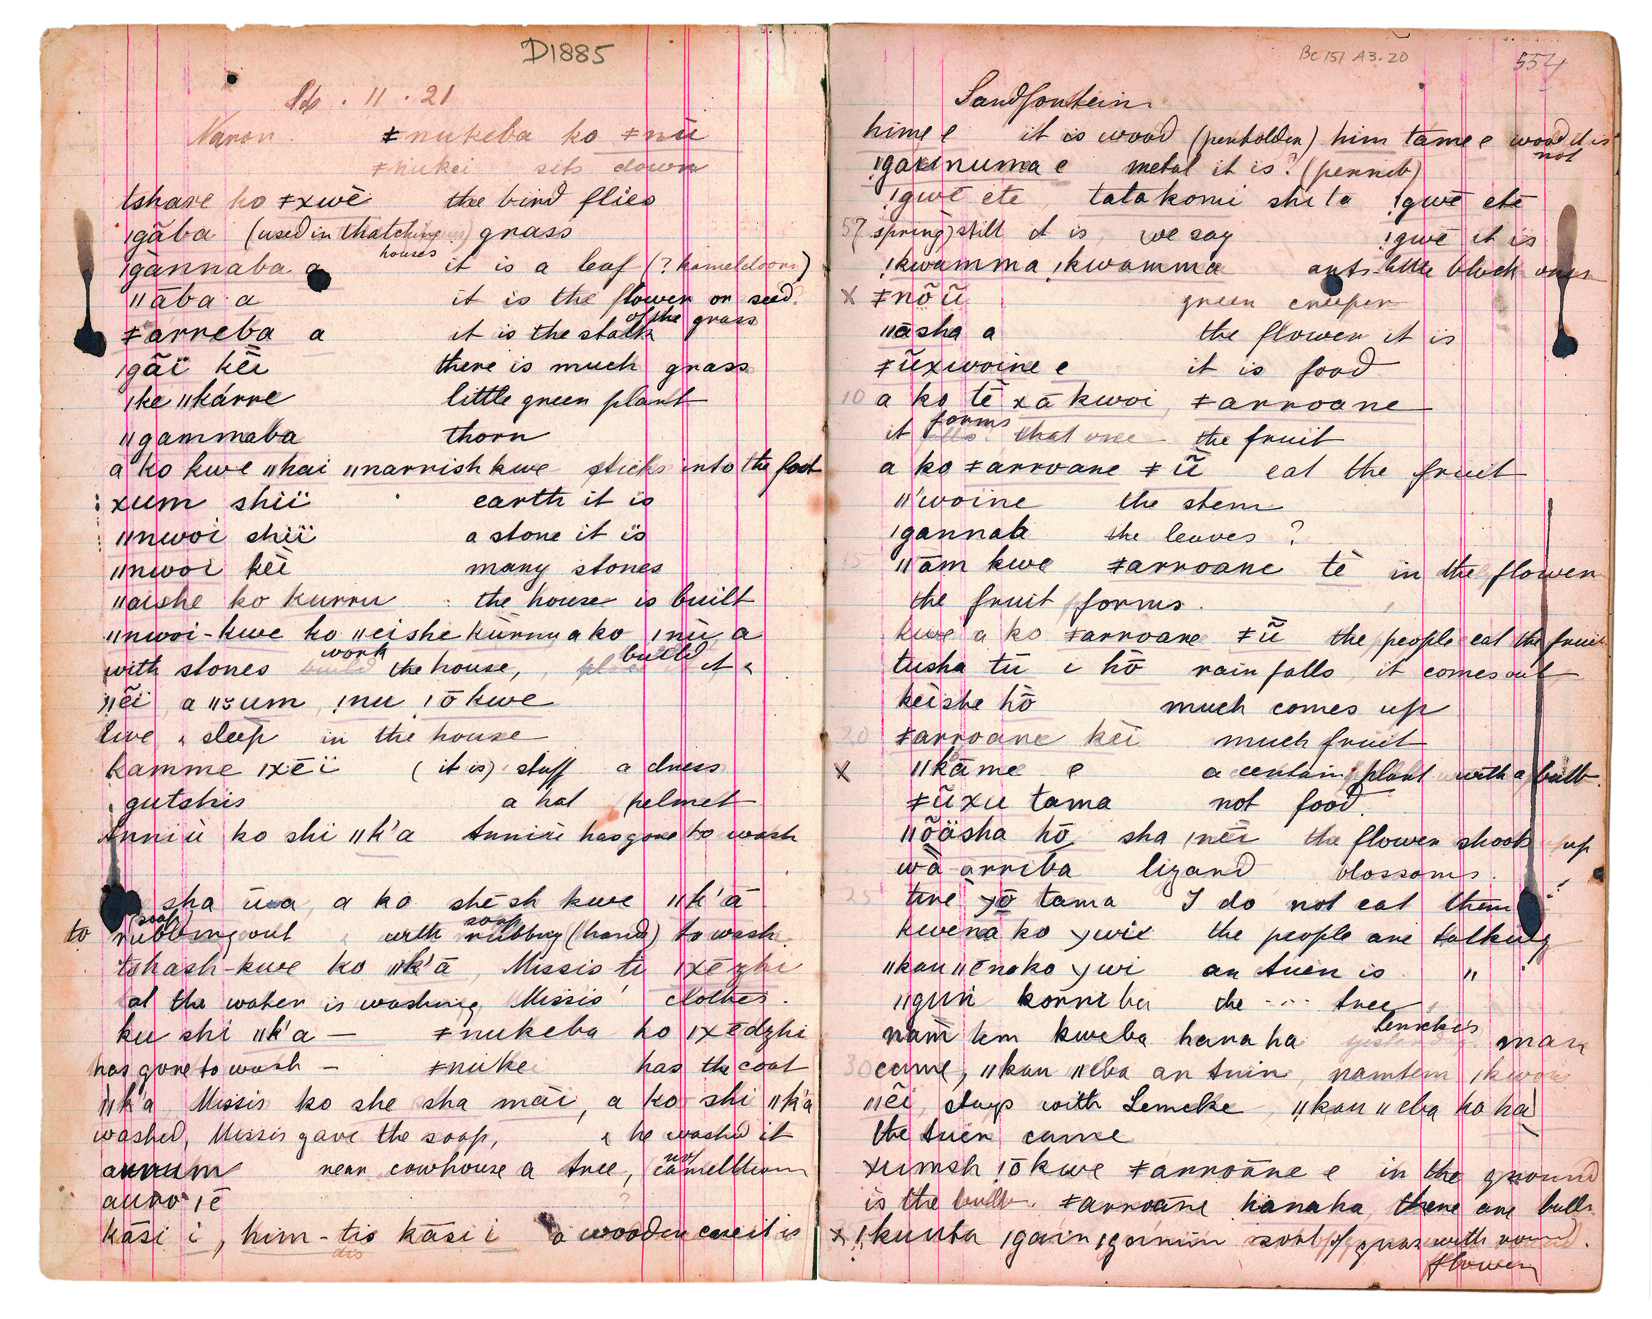 D1885
11 . 21
Naron ǂnukeba ko ǂnū
ǂnukei sits down
tshare ko ǂxwē the bird flies
ǀgāba (used in thatching houses) grass
ǀgannaba a it is a leaf (? kameldoorn)
ǁāba a it is the flower or seed of the grass
ǂarreba a it is the stalk
ǀgāï kēi there is much grass
ǀke ǁkárre little green plant
ǁgammaba thorn
a ko kwe ǁhai ǁnarrish kwe sticks into the foot
xum shiï earth it is
ǁnwoi shiï a stone it is
ǁnwoi kēi many stones
ǁaishe ko kurru the house is built
ǁnwoi-kwe ko ǁeishe kurru a ko ǀnū a
with stones work the house, build it &
ǁēi, a ǁum, ǃnu ǃō kwe
live & sleep in the house
kamme ǀxēï (it is) stuff a dress
gutshis a hat pelmet
Anniū ko shi ǁk'a Anniū has gone to wash
sha ūa, a ko shēsh kwe ǁk'ā
to rubbing out (soap) with soap rubbing (hand) to wash
tshash-kwe ko ǁk'ā, Missis ti ǀxēzhi
at the water is washing Missis' clothes.
ku shi ǁk'a – ǂnukeba ko ǀxēdzhi
has gone to wash – ǂnuke has the coat
ǁk'a Missis ko she sha māi, a ko shi ǁk'a
washed, Missis gave the soap, & he washed it
aurum near cowhouse a tree, not camelthorn
auro ǀē
kāsi i, him-tis kāsi i a wooden case it is
dis
BC 151 A3.20
554
Sandfontein
hime e it is wood (penholder) him tame e wood it is not
ǃgakinuma e metal it is? (pennib)
ǃgwē ete tatakomi shi ta ǃgwē ete
5 (spring) still it is, we say ǃgwē it is
ǃkwamma ǃkwamma ants little black ones
x ǂnõũ green creeper
ǁāsha a the flower it is
ǂũxwoine e it is food
10 a ko tē xā kwoi, ǂarroane
it forms that one the fruit
a ko ǂarroane ǂũ eat the fruit
ǁ'woine the stem
ǀgannab the leaves ?
15 ǁām kwe ǂarroane tē in the flower
the fruit forms.
kwe a ko ǂarroane ǂũ the people eat the fruit
tusha tū i hō rain falls, it comes out
kēishe hō much comes up
20 ǂarroane kēi much fruit
x ǁkāme e a certain plant with a bulb.
ǂũxu tama not food.
ǁõäsha hō sha ǀnēi the flower shoots up
wā arriba lizard blossoms.
25 tire yō tama I do not eat them
kwena ko ywi the people are talking
ǁkau ǁēnako ywi an Auen is "
ǁguri korriba the ... tree
nam km kweba hana ha Lemcke's man
30 came, ǁkau ǁeba an Auin, namtem ǀkwoi
ǁēi, stays with Lemcke, ǁkau ǁeba ko ha
the Auen came
xumsh ǃō kwe ǂarroāne e in the ground
is the bulb. ǂarroane hanaha, there are bulbs
x ǃkunta ǀgain ǀgamin sort of grass with round flower